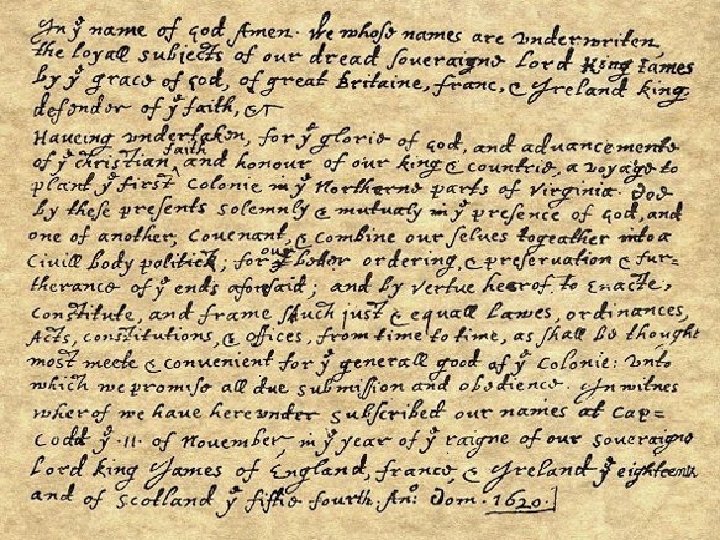 In yͤ name of god Amen. We whose names are underwriten,
the loyall subjects of our dread soveraigne Lord King James
by yͤ grace of god, of great Britaine, franc, & Ireland king,
defender of yͤ faith, &c
Haveing undertaken, for yͤ glorie of god, and advancemente
of yͤ christian faith and honour of our king & countrie, a voyage to
plant yͤ first colonie in yͤ Northerne parts of Virginia. doe
by these presents solemnly & mutualy in yͤ presence of god, and
one of another, covenant, & combine our selves togeather into a
civill body politick; for our better ordering, & preservation & fur=
therance of yͤ ends aforesaid; and by vertue hearof, to enacte,
constitute, and frame such just & equall lawes, ordinances,
Acts, constitutions, & offices, from time to time, as shall be thought
most meete & convenient for yͤ generall good of yͤ colonie: unto
which we promise all due submission and obedience. In witnes
wherof we have hereunder subscribed our names at Cap=
Codd yͤ .11. of November, in yͤ year of yͤ raigne of our soveraigne
Lord king James of England, france, & Ireland yͤ eighteenth
and of Scotland yͤ fiftie fourth. Anº: Dom. 1620.]